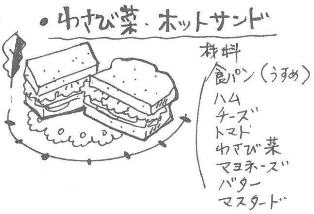 ・わさび菜・ホットサンド
材料
食パン(うすめ)
ハム
チーズ
トマト
わさび菜
マヨネーズ
バター
マスタード